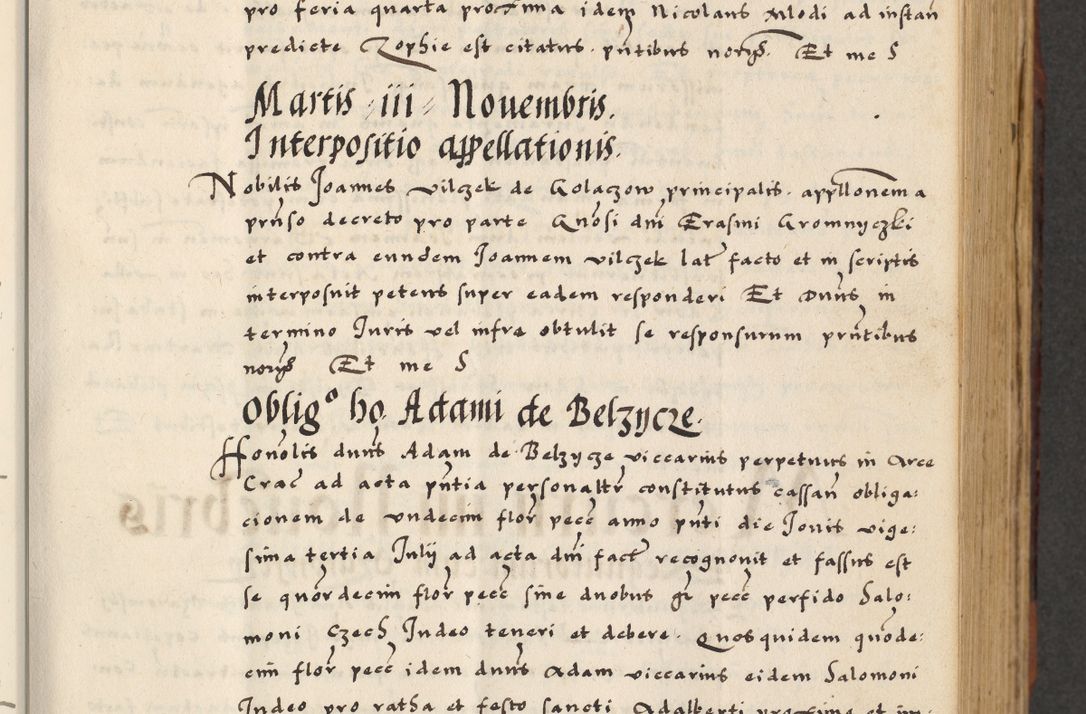 pro feria quarta proxima idem Nicolaus Mlodi ad instan
predicte Zophie est citatus. pntibus norijs. Et me S
Martis iii Nouembris.
Interpositio appellationis.
Nobilis Joannes vilczek de Golaczow principalis. appllonem a
pnso decreto pro parte Gnosi dni Erasmi Gromnyczki
et contra eundem Joannem vilczek lat facto et in scriptis
interposuit petens super eadem responderi Et Duns in
termino Juris vel infra obtulit se responsurum pntibus
norijs Et me S
Obligo ho. Adami de Belzycze.
Honolis duns Adam de Belzycze viccarius perpetuus in Arce
Crac ad acta pntia personaltr constitutus cassan obliga:
cionem de vndecim flor pecc anno pnti die Jouis vige:
sima tertia Julij ad acta dni fact recognouit et fassus est
se quordecim flor pecc sine duobus gr pecc perfido Salo:
moni Czech Judeo teneri et debere. Quos quidem quode:
cim flor pecc idem duns Adam viccarius eidem Salomoni
Judeo pro ratha et festo sancti Adalberti proxime et im